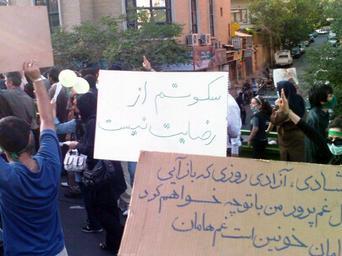 سکوتم از
رضایت نیست
شادی، آزادی روزی که بازآیی
غم پرور من با تو چه خواهم کرد
خونین است غم هامان